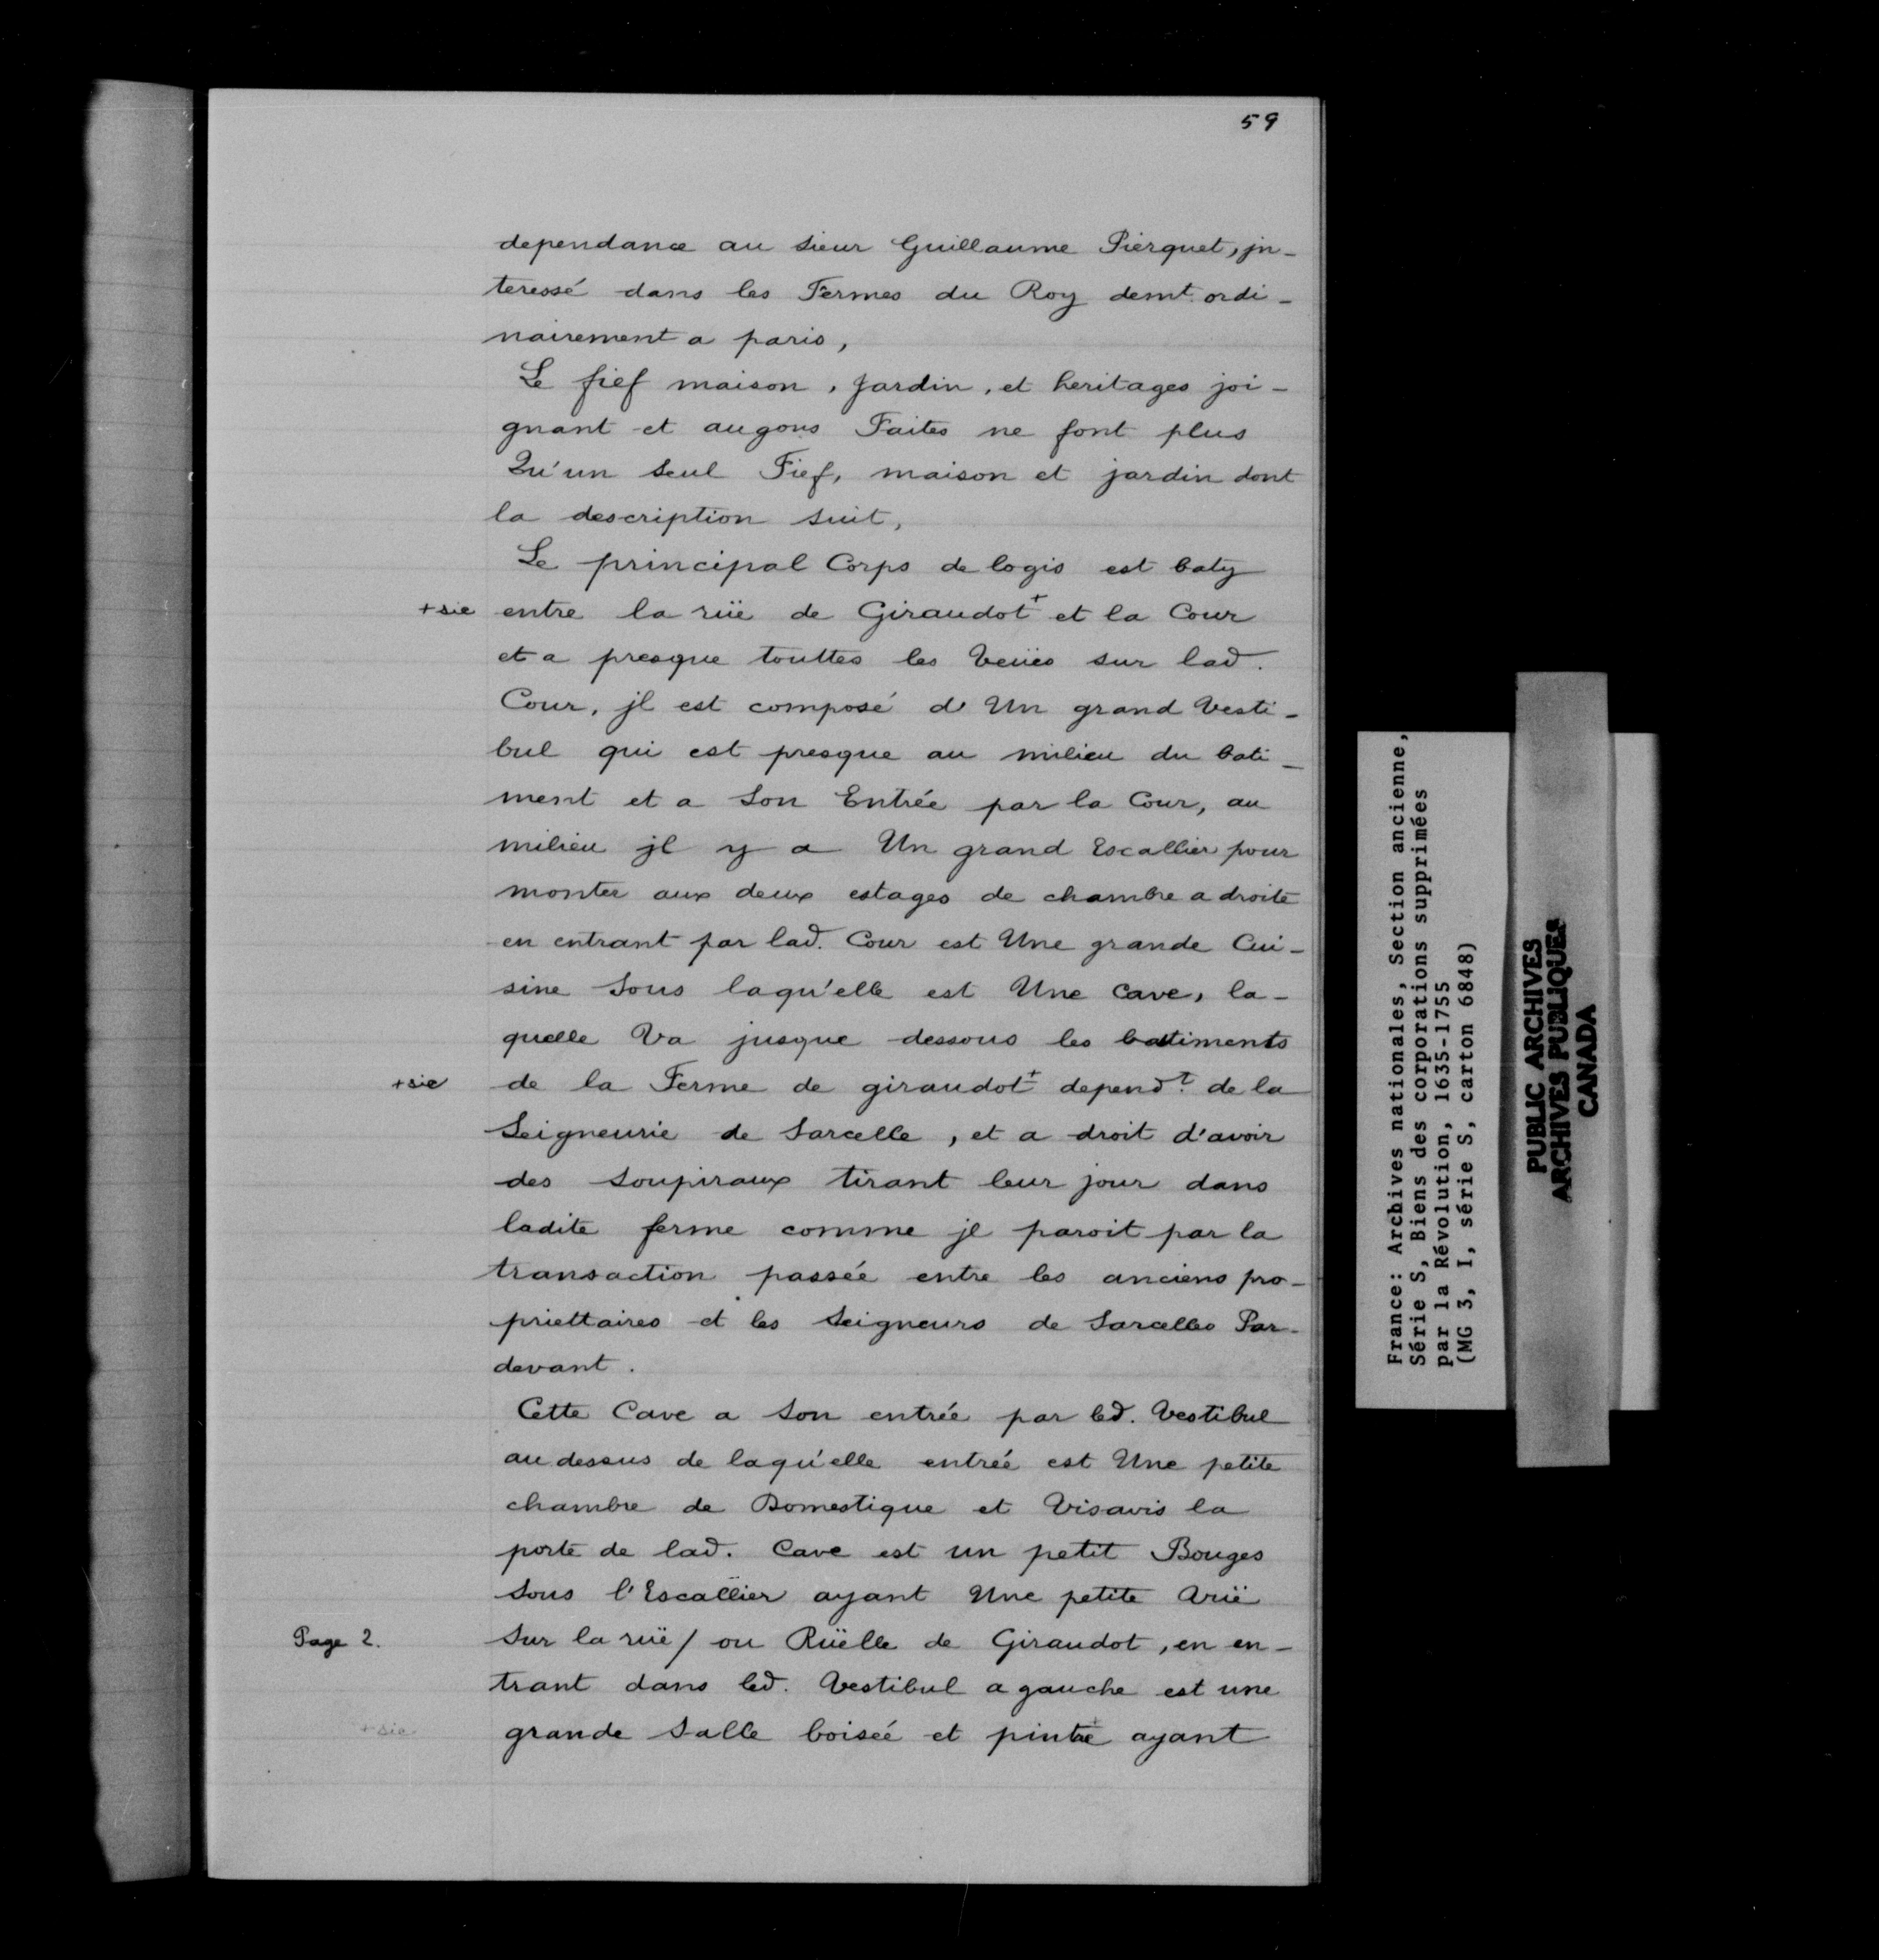 59
dependance au sieur Guillaume Pierquet, jn-
teressé dans les Fermes du Roy demt ordi-
nairement a paris,
Le fief maison, Jardin, et heritages joi-
gnant et augons Faites ne font plus
Qu'un seul Fief, maison et jardin dont
la description suit,
Le principal Corps de logis est baty
+ sic entre la rüe de Giraudot+ et la Cour
et a presque touttes les Veües sur lad.
Cour, jl est composé d'Un grand Vesti-
bul qui est presque au milieu du bati-
ment et a son Entrée par la Cour, au
milieu jl y a Un grand Escallier pour
monter aux deux estages de chambre a droite
en entrant par lad. Cour est Une grande Cui-
sine sous laqu'elle est Une Cave, la-
quelle Va jusque dessous les batiments
+ sic de la Ferme de giraudot+ depend.t de la
Seigneurie de Sarcelle, et a droit d'avoir
des soupiraux tirant leur jour dans
ladite ferme comme jl paroit par la
transaction passée entre les anciens pro-
priettaires et les Seigneurs de Sarcelles Par-
devant.
Cette Cave a son entrée par led. Vestibul
au dessus de laqu'elle entrée est Une petite
chambre de Domestique et Visavis la
porte de lad. Cave est un petit Bouges
sous l'Escallier ayant Une petite Vrüe
Page 2. sur la rüe / ou Rüelle de Giraudot, en en-
trant dans led. Vestibul a gauche est une
+ sic grande Salle boisée et pintre+ ayant
France: Archives nationales, Section ancienne,
Série S, Biens des corporations supprimées
par la Révolution, 1635-1755
(MG 3, I, série S, carton 6848)
PUBLIC ARCHIVES
ARCHIVES PUBLIQUES
CANADA